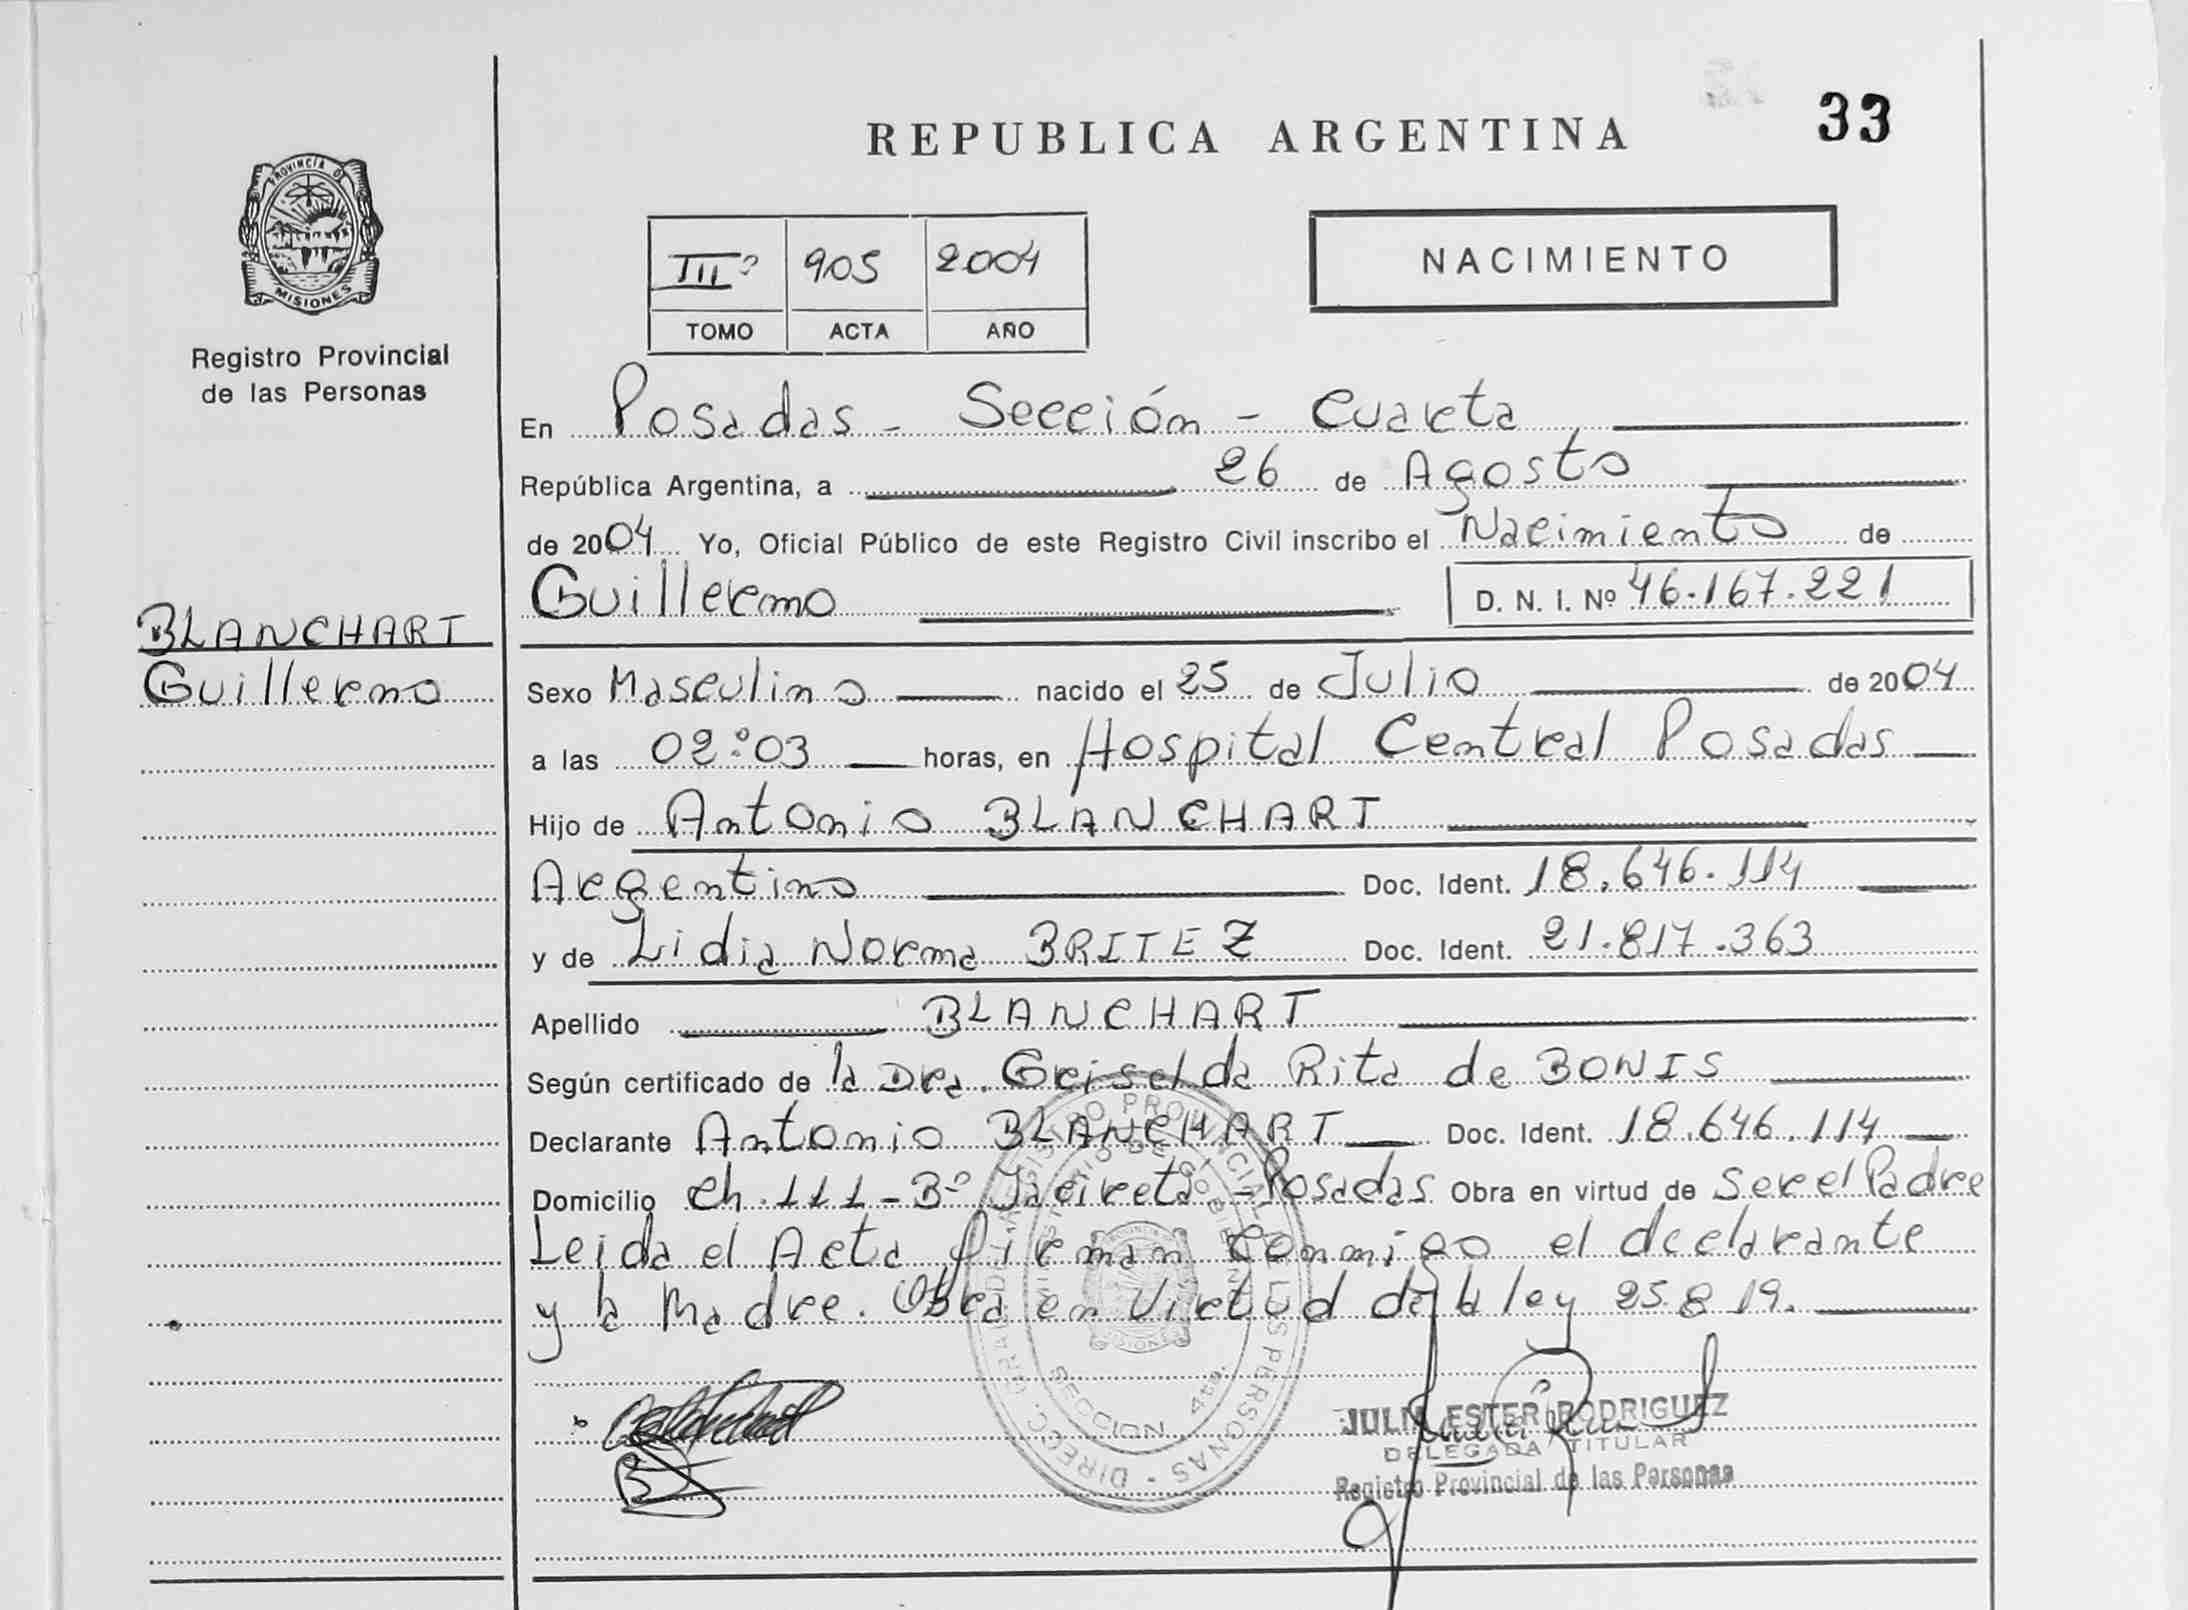 REPUBLICA ARGENTINA
33
PROVINCIA DE
MISIONES
Registro Provincial
de las Personas
IIIº 905 2004
TOMO ACTA AÑO
NACIMIENTO
En Posadas - Sección - Cuarta
República Argentina, a 26 de Agosto
de 2004 Yo, Oficial Público de este Registro Civil inscribo el Nacimiento de
Guillermo D. N. I. Nº 46.167.221
BLANCHART
Guillermo
Sexo Masculino nacido el 25 de Julio de 2004
a las 02:03 horas, en Hospital Central Posadas
Hijo de Antonio BLANCHART
Argentino Doc. Ident. 18.646.114
y de Lidia Norma BRITEZ Doc. Ident. 21.817.363
Apellido BLANCHART
Según certificado de la Dra. Griselda Rita de BONIS
Declarante Antonio BLANCHART Doc. Ident. 18.646.114
Domicilio Ch. 111 - Bº Yacireta - Posadas Obra en virtud de Ser el Padre
Leida el Acta firman conmigo el declarante
y la Madre. Obra en Virtud de la ley 25.819.
SECCION 4ta.
JULIA ESTER RODRIGUEZ
DELEGADA TITULAR
Registro Provincial de las Personas